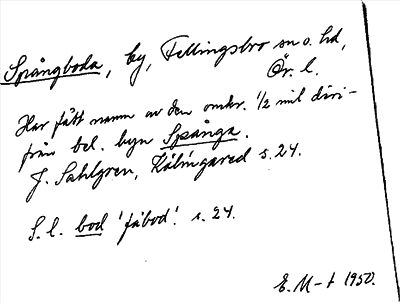 Spångboda, by, Fellingsbro sn o. hd,
Ör. l.
Har fått namn av den omkr. 1/2 mil däri-
från bel. byn Spånga.
J. Sahlgren, Kålmgared s. 24.
S. l. bod 'fäbod'. s. 24.
E. M-t 1950.